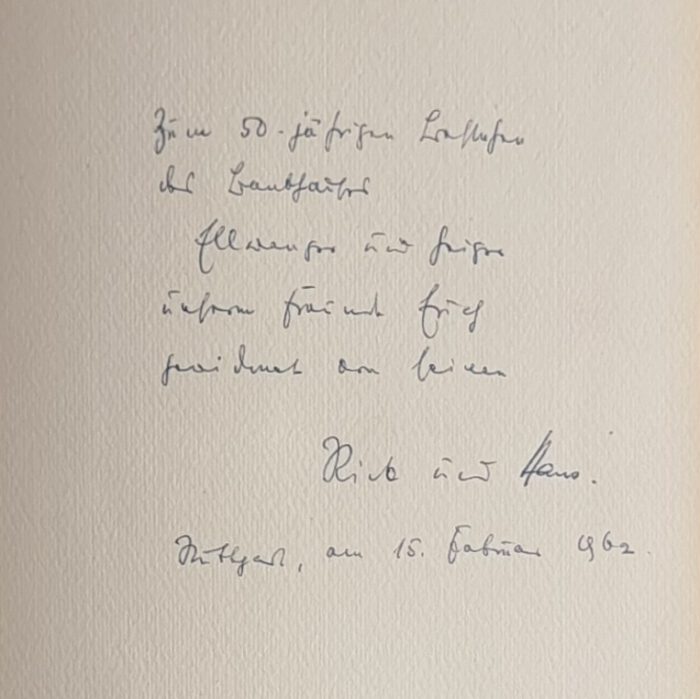 Zum 50-jährigen Bestehen
des Bankhauses
Ellwanger und Geiger
unserm Freund Erich
gewidmet von seinen
und Hans.
Stuttgart, am 15. Februar 1962.